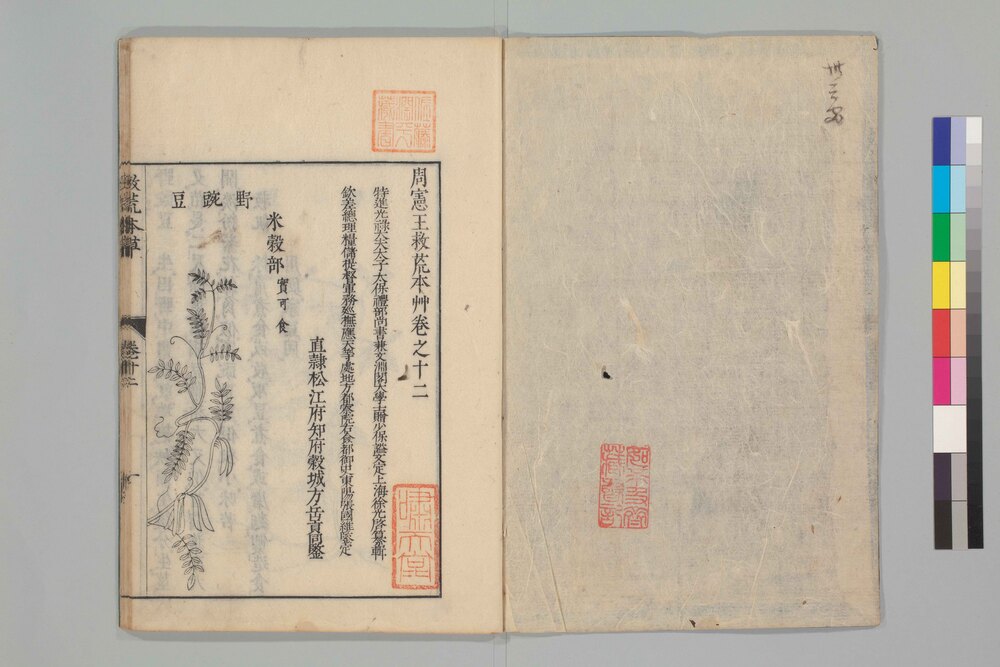 周憲王救荒本艸卷之十二
特進光祿大夫太子太保禮部尚書兼文淵閣大學士贈少保諡文定上海徐光啓纂輯
欽差總理糧儲提督軍務巡撫應天等處地方都察院右僉都御史東陽張國維鑒定
直隷松江府知府穀城方岳貢同鑒
米穀部 實可食
野豌豆
救荒本草
卷十二
一